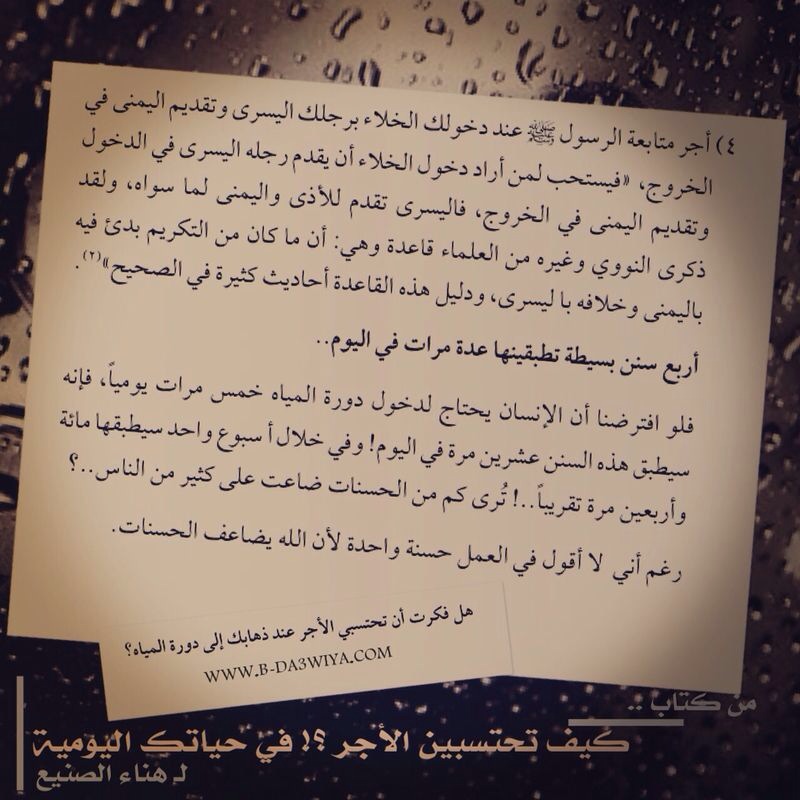 ٤) أجر متابعة الرسول ﷺ عند دخولك الخلاء برجلك اليسرى وتقديم اليمنى في
الخروج، «فيستحب لمن أراد دخول الخلاء أن يقدم رجله اليسرى في الدخول
وتقديم اليمنى في الخروج، فاليسرى تقدم للأذى واليمنى لما سواه، ولقد
ذكرى النووي وغيره من العلماء قاعدة وهي: أن ما كان من التكريم بدئ فيه
باليمنى وخلافه با ليسرى، ودليل هذه القاعدة أحاديث كثيرة في الصحيح»(٢).
أربع سنن بسيطة تطبقينها عدة مرات في اليوم..
فلو افترضنا أن الإنسان يحتاج لدخول دورة المياه خمس مرات يومياً، فإنه
سيطبق هذه السنن عشرين مرة في اليوم! وفي خلال أ سبوع واحد سيطبقها مائة
وأربعين مرة تقريباً..! تُرى كم من الحسنات ضاعت على كثير من الناس..؟
رغم أني لا أقول في العمل حسنة واحدة لأن الله يضاعف الحسنات.
هل فكرت أن تحتسبي الأجر عند ذهابك إلى دورة المياه؟
WWW.B-DA3WIYA.COM
من كتاب ..
كيف تحتسبين الأجر ؟! في حياتك اليومية
لـ هناء الصنيع